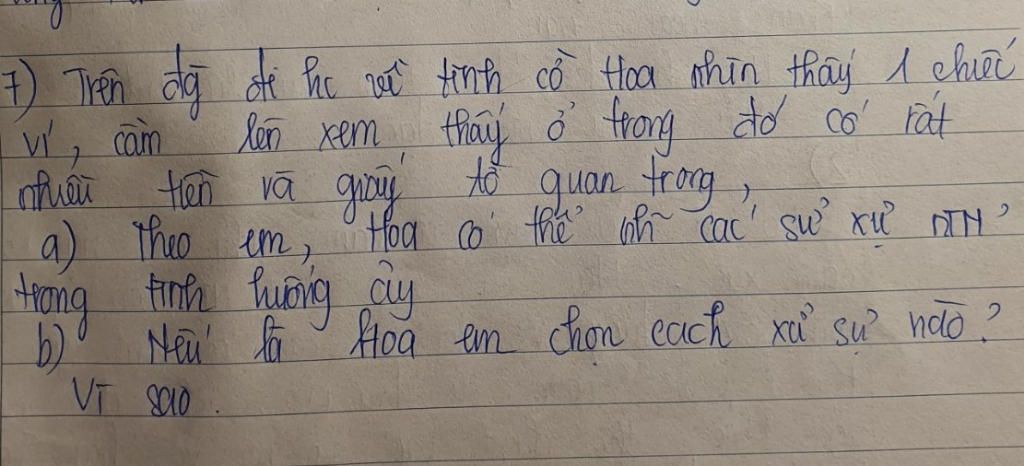 7) Trên đg đi hc về tình cờ Hoa nhìn thấy 1 chiếc
ví, cầm lên xem thấy ở trong đó có rất
nhiều tiền và giấy tờ quan trọng,
a) Theo em, Hoa có thể nh các sử xự NTN
trong tình huống ấy
b) Nếu là Hoa em chọn cach xử sự nào?
Vì sao.